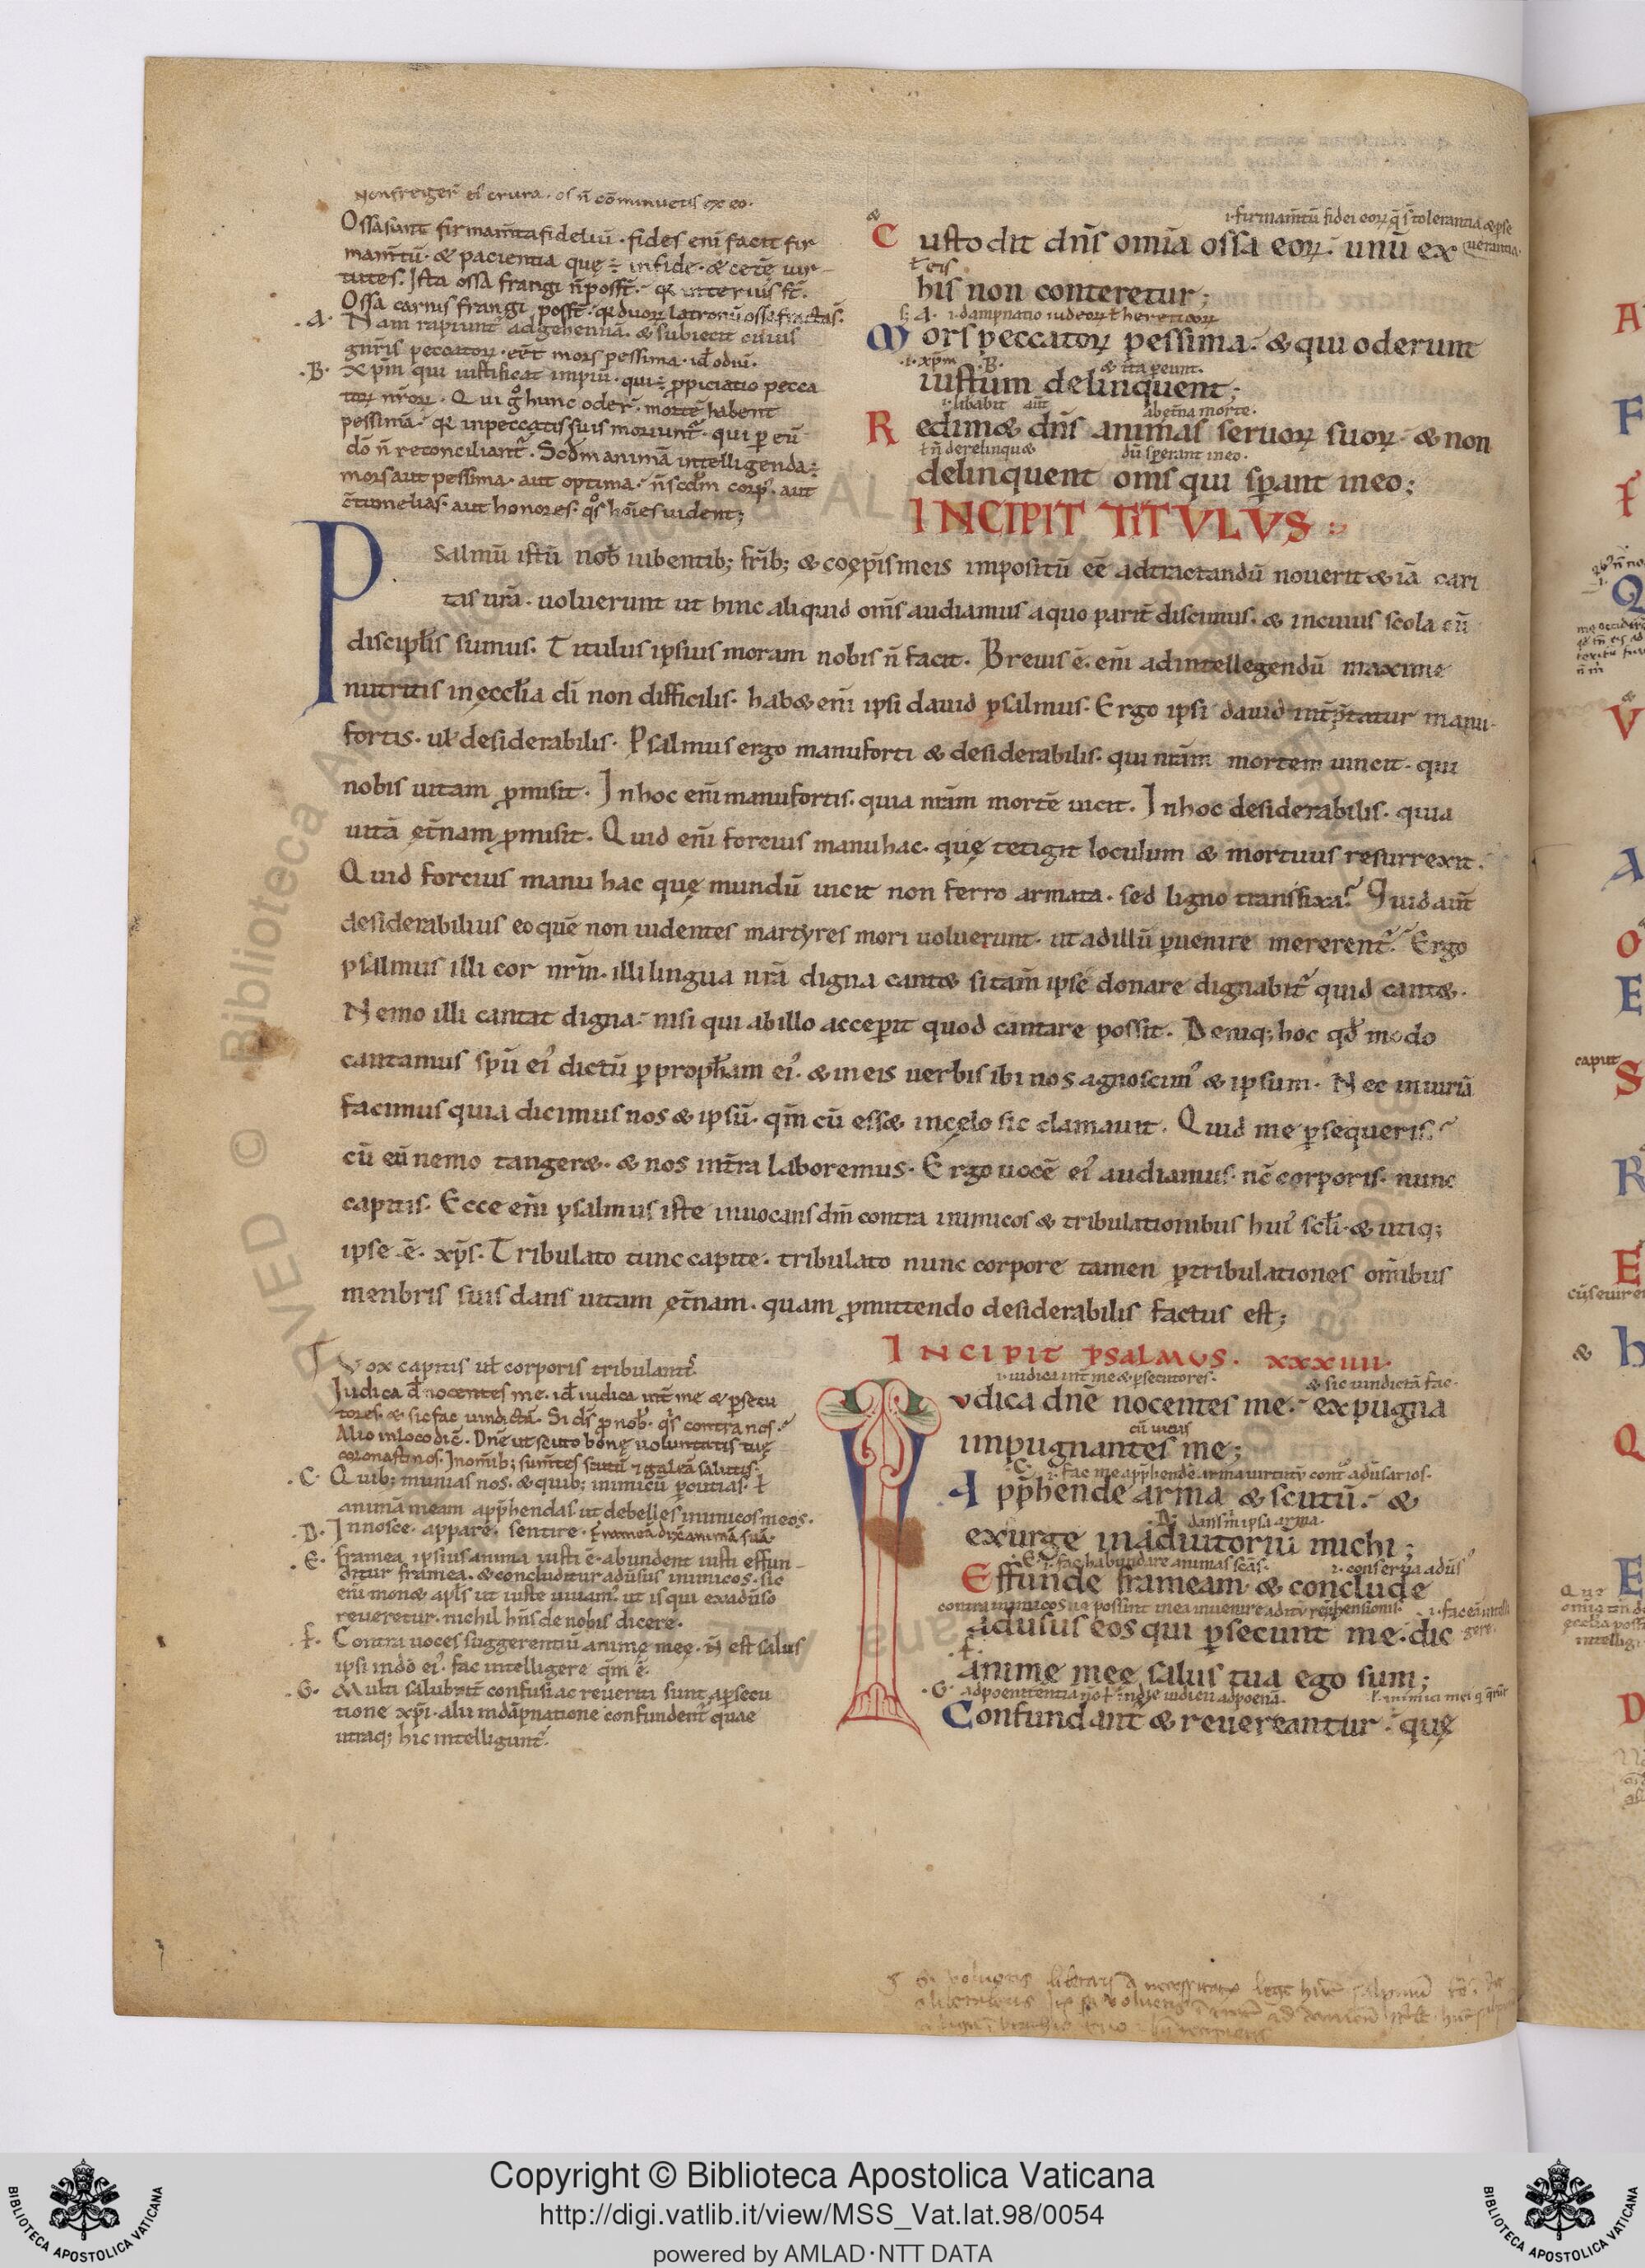 Nonfreger̄ ei' crura · os n̄ cōminuetis ex eo·
Ossa sunt firmam̄ta fideliū · fides eni facit fir
mam̄tū· & pacientia quę ÷ in fide· & cetę̄ uir
tutes. Ista ossa frangi n̄ poss̄t· q̄ interius st̄.
Ossa carnis frangi poss̄t· q̄ duoꝝ latronū ossa fracta s̄.
·A· Nam rapiunt ad gehennā. & subiecit
peccatoꝝ · eēt mors pessima · id̄ odiū·
·B· xp̄m qui iustificat impiū· qui ÷ ꝓpiciatio pecca
toꝝ nr̄oꝝ· Qui g̊ hunc oder̄· mortē habent
pessimā· q̄ in peccatis suis moriunt̄· qui ꝑ eū
dō n̄ reconciliant̄. Scd̄m animā intelligenda ÷
mors aut pessima· aut optima· n̄ scd̄m corp'· aut
c̄tumelias· aut honores· q̊s hōies uident;
&
ı· firmam̄tū fidei eoꝝ q̄ s̄ tolerantia & pse
uerantia·
Custodit dn̄s omīa ossa eoꝝ· unū ex
ł eis
his non conteretur;
A· ı· dampnatio iudeoꝝ ł hereticoꝝ
Mors peccatoꝝ pessima· & qui oderunt
·ı· xp̄m ·B· & ita ꝑeunt·
iustum delinquent;
ı· libabit aūt ab et̄na morte·
Redim& dn̄s animas seruoꝝ suoꝝ· & non
ł n̄ derelinqu& dū sꝑant in eo·
delinquent om̄s qui sꝑant in eo;
INCIPIT TITULUS :
Psalmū istū nob̄ iubentib; fr̄ib; & coep̄is meis impositū eē adtractandū nouerit & iā cari
tas ur̄a· uoluerunt ut hinc aliquid om̄s audiamus a quo parit̄ discimus· & in cuius scola cū
discipl̄is sumus. Titulus ipsius moram nobis n̄ facit· Breuis ē· eni ad intellegendū maxime
nutritis in ęccl̄ia dī non difficilis· hab& eni ipsi dauid psalmus· Ergo ipsi dauid int̄p̄tatur manu
fortis· ul̄ desiderabilis· Psalmus ergo manu forti & desiderabilis· qui nr̄am mortem uincit· qui
nobis uitam ꝓmisit· In hoc eni manu fortis· quia nr̄am mortē uicit. In hoc desiderabilis· quia
uitā ęt̄nam ꝓmisit. Quid eni forcius manu hac· quę tetigit loculum & mortuus resurrexit.
Quid forcius manu hac quę mundū uicit non ferro armata· sed ligno transfixa? Quid aūt
desiderabilius eo quē non uidentes martyres mori uoluerunt· ut ad illū ꝑuenire mererent̄? Ergo
psalmus illi cor nr̄m· illi lingua nr̄a digna cant& si tam̄ ipse donare dignabit̄ quid cant&·
Nemo illi cantat digna· nisi qui ab illo acceꝑit quod cantare possit. Deniq; hoc qd̄ modo
cantamus sp̄u ei' dictū ꝑ proph̄am ei'· & in eis uerbis ibi nos agnoscim' & ipsum· Nec iniuriā
facimus quia dicimus nos & ipsū· qm̄ cū ess& in cęlo sic clamauit. Quid me ꝑsequeris?
cū eū nemo tanger&· & nos in t̄ra laboremus· Ergo uocē ei' audiamus· nc̄ corporis· nunc
capitis· Ecce eni psalmus iste inuocans dm̄ contra inimicos & tribulationibus hui' scl̄i· & utiq;
ipse ē· xp̄s. Tribulato tunc capite· tribulato nunc corpore tamen ꝑ tribulationes om̄ibus
menbris suis dans uitam ęt̄nam· quam ꝓmittendo desiderabilis factus est;
Vox capitis ul̄ corporis tribulant̄
Iudica d̄ nocentes me· id̄ iudica int̄ me & ꝑsecu
tores· & sic fac uindictā· Si ds̄ ꝓ nob̄· q's contra nos?
Alio in loco dic̄· Dnē ut scuto bonę uoluntatis tuę
coronasti nos· In om̄ib; sum̄tes scutū ⁊ galeā salutis·
·C· Quib; munias nos· & quib; inimicū ꝑcutias· ł
animā meam app̄hendas ut debelles inimicos meos·
·D· Innosce· appare· sentire· frameā dix& animā suā·
·E· framea ipsius anima iusti ē· abundent iusti effun
ditur framea· & concluditur adūsus inimicos· sic
eni mon& apl̄s ut iuste uiuam'· ut is qui ex adūso
reueretur· nichil hn̄s de nobis dicere·
·F· Contra uoces suggerentiū animę męę· n̄ est salus
ipsi in dō ei'· fac intelligere qm̄ ē·
·G· Multi salubrit̄ confusi ac reueriti sunt a ꝑsecu
tione xp̄i· alii in dāpnatione confundent̄ quae
utraq; hic intelligunt̄·
INCIPIT PSALMUS· XXXIIII·
ı· iudica int̄ me & ꝑsecutores· & sic uindictā fac·
Iudica dnē nocentes me· expugna
impugnantes me;
·C· ı· fac me app̄hende arma uirtutū cont̄ adūsarios·
App̄hende arma & scutū· &
·D· dans m̄ ipsa arma·
exurge in adiutoriū michi;
·E· ı· fac habundare animas sc̄as· ı· conserua adūs'
Effunde frameam & conclude
contra inimicos ne possint mea inuenire aditū rep̄hensionis· ı· fac eā intelli
gere·
adūsus eos qui ꝑsecunt me· dic
·F·
anime meę salus tua ego sum;
·G· ad poenitentia
Confundant̄ & reuereantur· quę
Copyright © Biblioteca Apostolica Vaticana
http://digi.vatlib.it/view/MSS_Vat.lat.98/0054
powered by AMLAD·NTT DATA
BIBLIOTECA APOSTOLICA VATICANA
BIBLIOTECA APOSTOLICA VATICANA